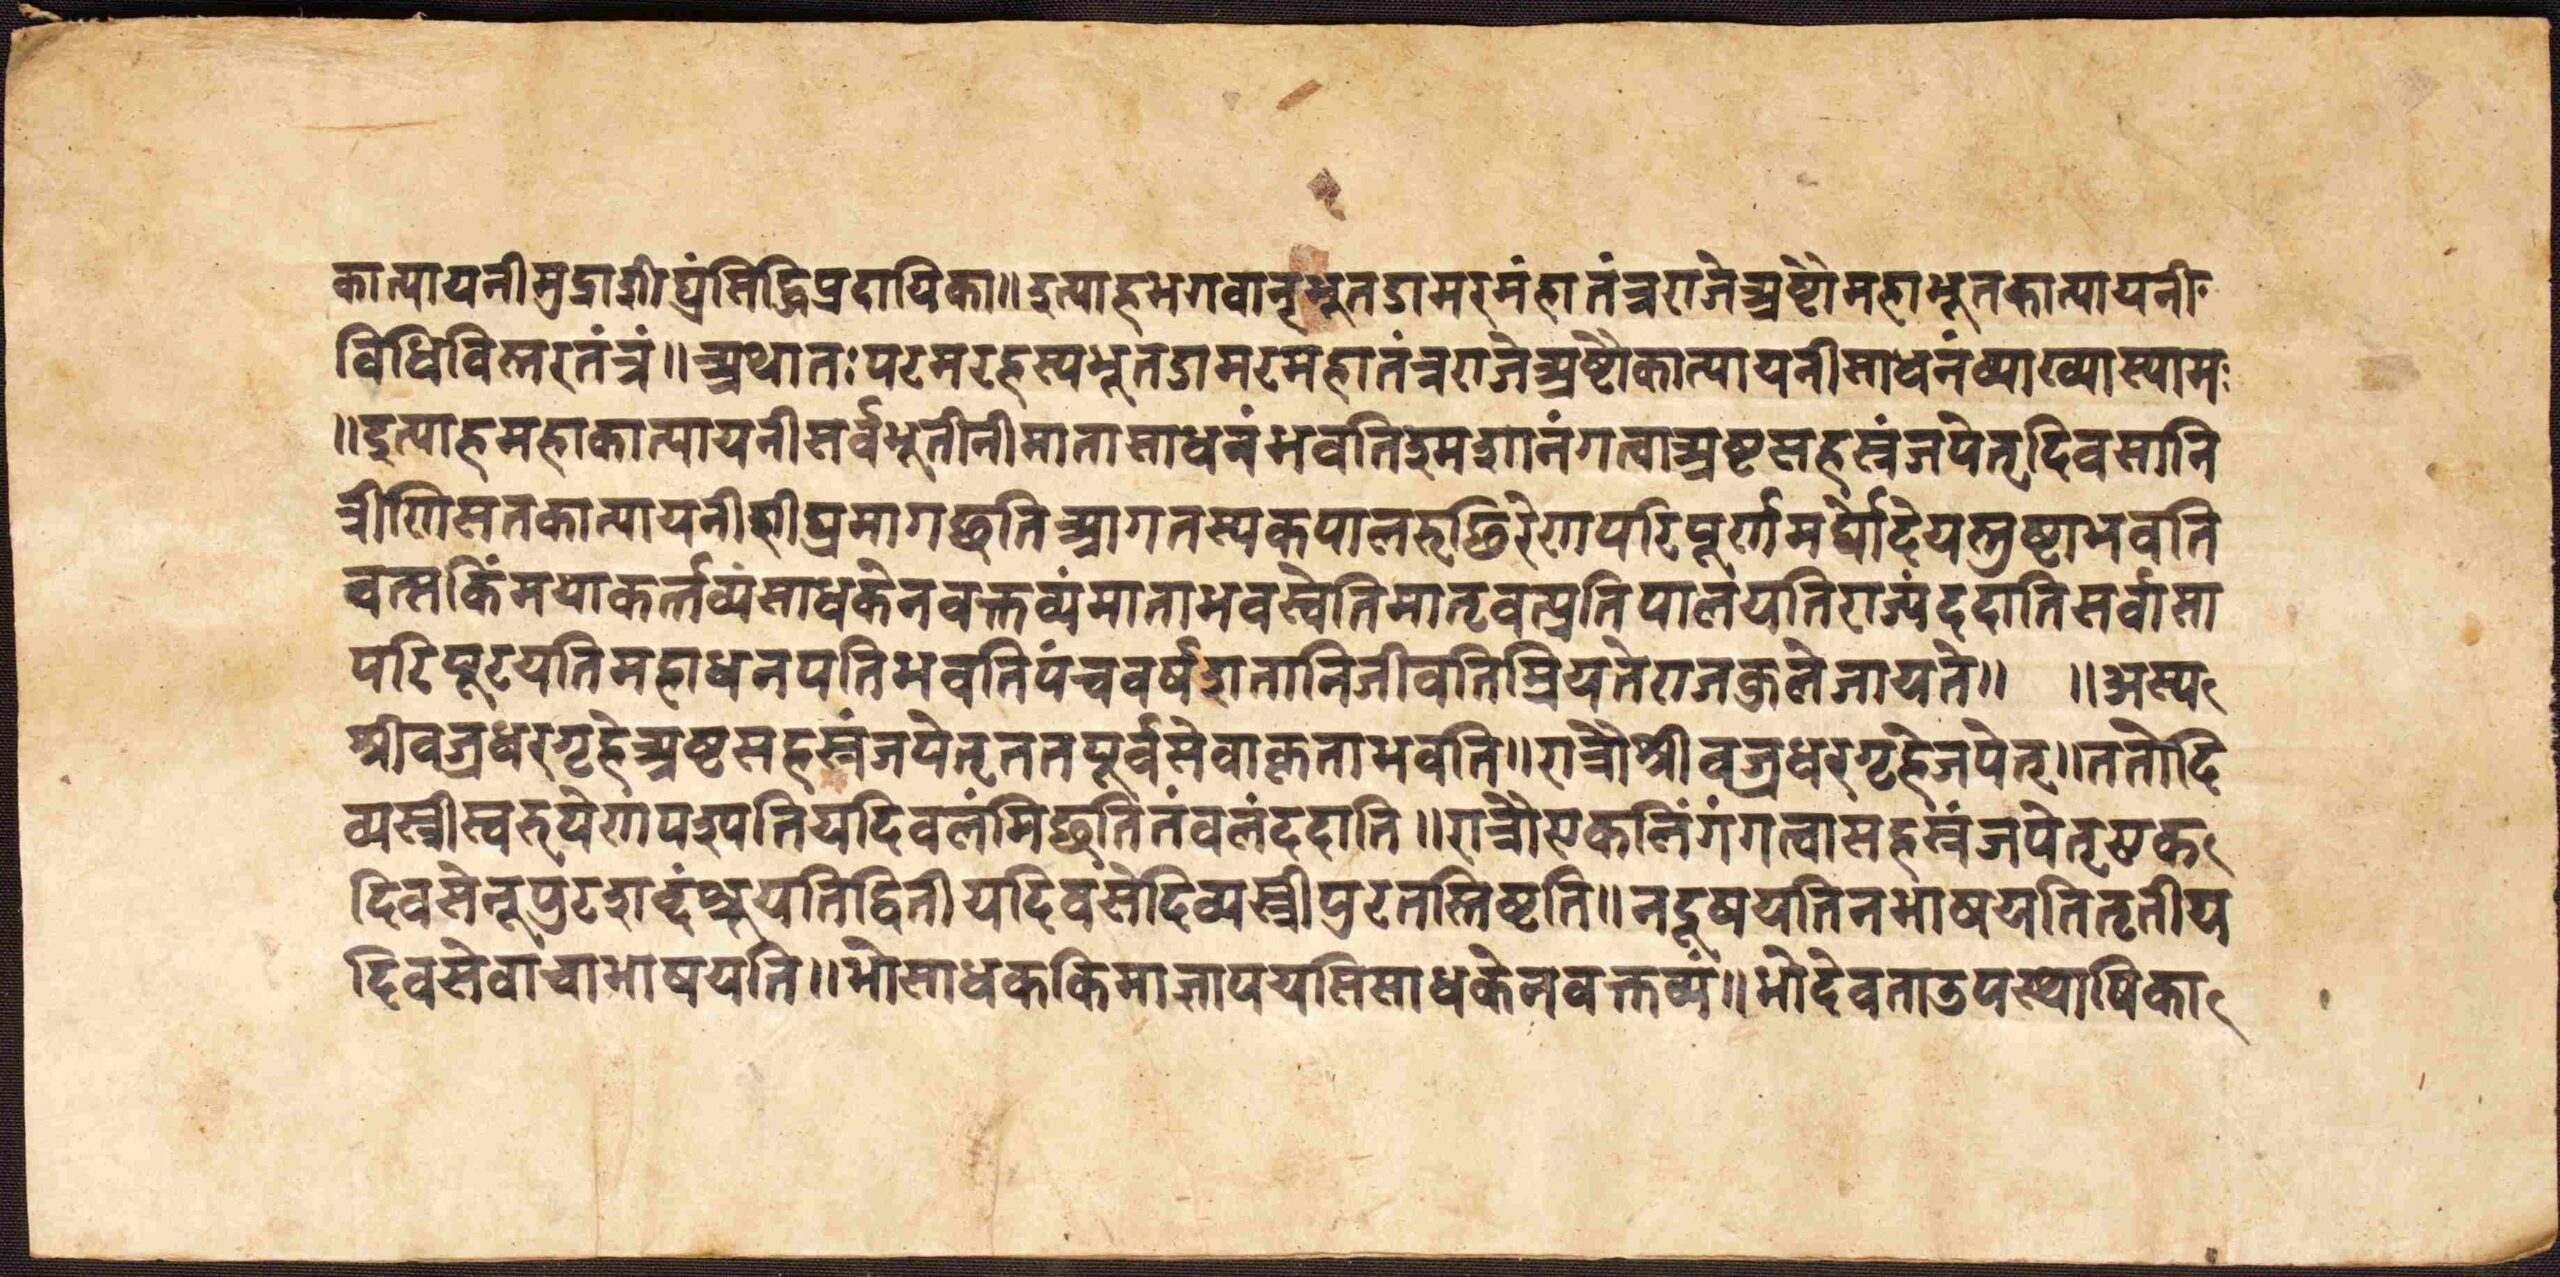 कात्यायनीमुद्राशीघ्रंसिद्धिप्रदायिका॥इत्याहभगवान्भूतडामरमंहातंत्रराजेअष्टौमहाभूतकात्यायनी
विधिविस्तरतंत्रं॥अथातःपरमरहस्यभूतडामरमहातंत्रराजेअष्टौकात्यायनीसाधनंव्याख्यास्यामः
॥इत्याहमहाकात्यायनीसर्वभूतीनीमातासाधनंभवतिश्मशानंगत्वाअष्टसहस्रंजपेत्दिवसानि
त्रीणिसतकात्यायनीशीघ्रमागछतिआगतस्यकपालरुछिरेणपरिपूर्णमर्घोदेयस्तुष्टाभवति
वत्सकिंमयाकर्त्तव्यंसाधकेनवक्तव्यंमाताभवस्वेतिमातृवत्प्रतिपालयतिराज्यंददातिसर्वासा
परिपूरयतिमहाधनपतिभवतिपंचवर्षशतानिजीवतिम्रियतेराजकुलेजायते॥ ॥अस्य
श्रीवज्रधरगृहेअष्टसहस्रंजपेत्ततपूर्वसेवाकृताभवति॥रात्रौश्रीवज्रधरगृहेजपेत्॥ततोदि
व्यस्त्रीस्वरुपेणपश्पतियदिवलंमिछतितंवलंददाति॥रात्रौएकलिंगंगत्वासहस्रंजपेत्एक
दिवसेनूपुरशब्दंश्रूयतिद्वितीयदिवसेदिव्यस्त्रीपुरतस्तिष्टति॥नदूषयतिनभाषयतितृतीय
दिवसेवाचाभाषयति॥भोसाधककिमाज्ञापयसिसाधकेनवक्तव्यं॥भोदेवताउपस्थायिका